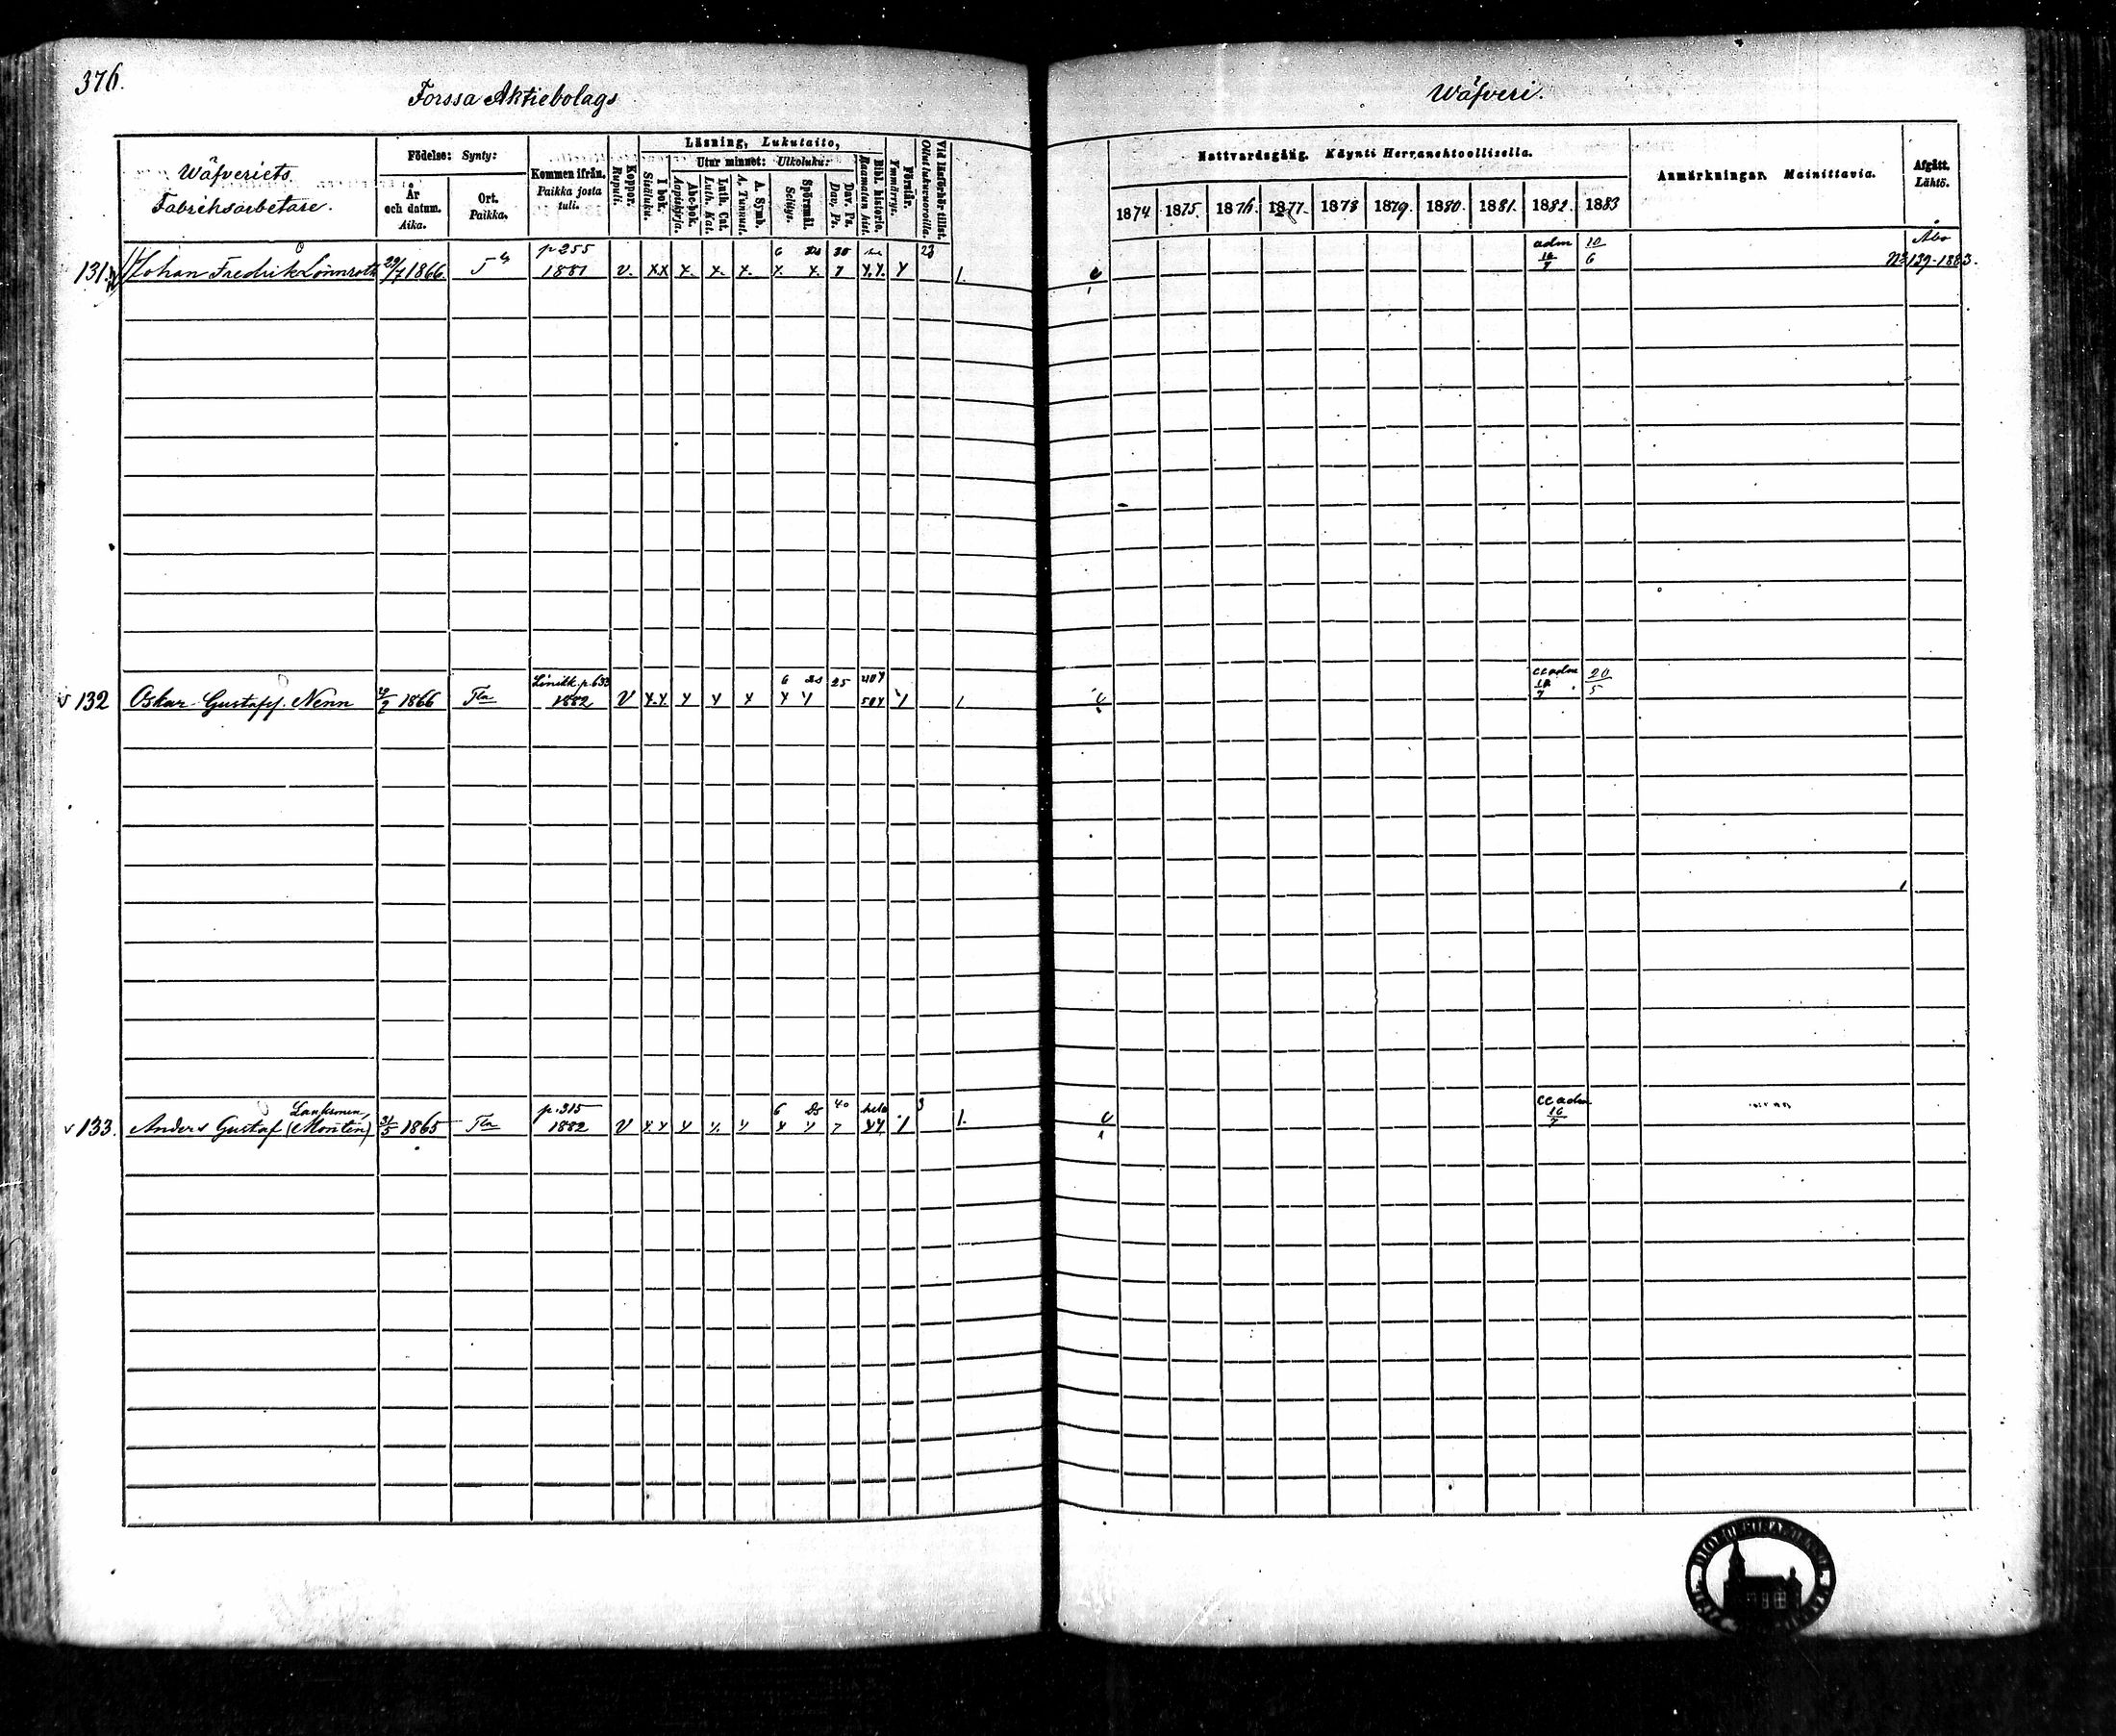 376.
Forssa Aktiebolags
Wäfveri.
Wäfveriets
Fabriksarbetare.
Födelse: Synty:
År och datum. Aika.
Ort. Paikka.
Kommen ifrån. Paikka josta tuli.
Koppor. Rupuli.
Läsning, Lukutaito,
I bok. Sisäluku.
Utur minnet: Ulkoluku:
Abc-bok. Aapiskirja.
Luth. Cat. Luth. Kat.
A. Symb. A. Tunnust.
Spörsmål. Selitys.
Dav. Ps. Dav. Ps.
Bibl. historie. Raamatun hist.
Förstår. Ymmärrys.
Vid läsförhör tillst. Ollut lukuvuoroilla.
Nattvardsgång. Käynti Herranehtoollisella.
1874 1875. 1876. 1877. 1878 1879. 1880. 1881. 1882. 1883
Anmärkningar. Mainittavia.
Afgått. Lähtö.
p 255 6 Ds 30 23 adm 10 Åbo
131. Johan Fredrik Lönnroth 29/7 1866. Tla 1881 v. xx x. x. x. x. x. 7 1. 16/7 6 No 139-1883.
p. 633 6 Ds 25 cc adm 20
132 Oskar Gustaf Nenn 1866 Tla 1882 v x x 16/7 5
Lauksmen, p. 315 6 Ds 40 hela 3 cc adm
133. Anders Gustaf (Montin) 31/5 1865 Tla 1882 v x x 7 1. 16/7